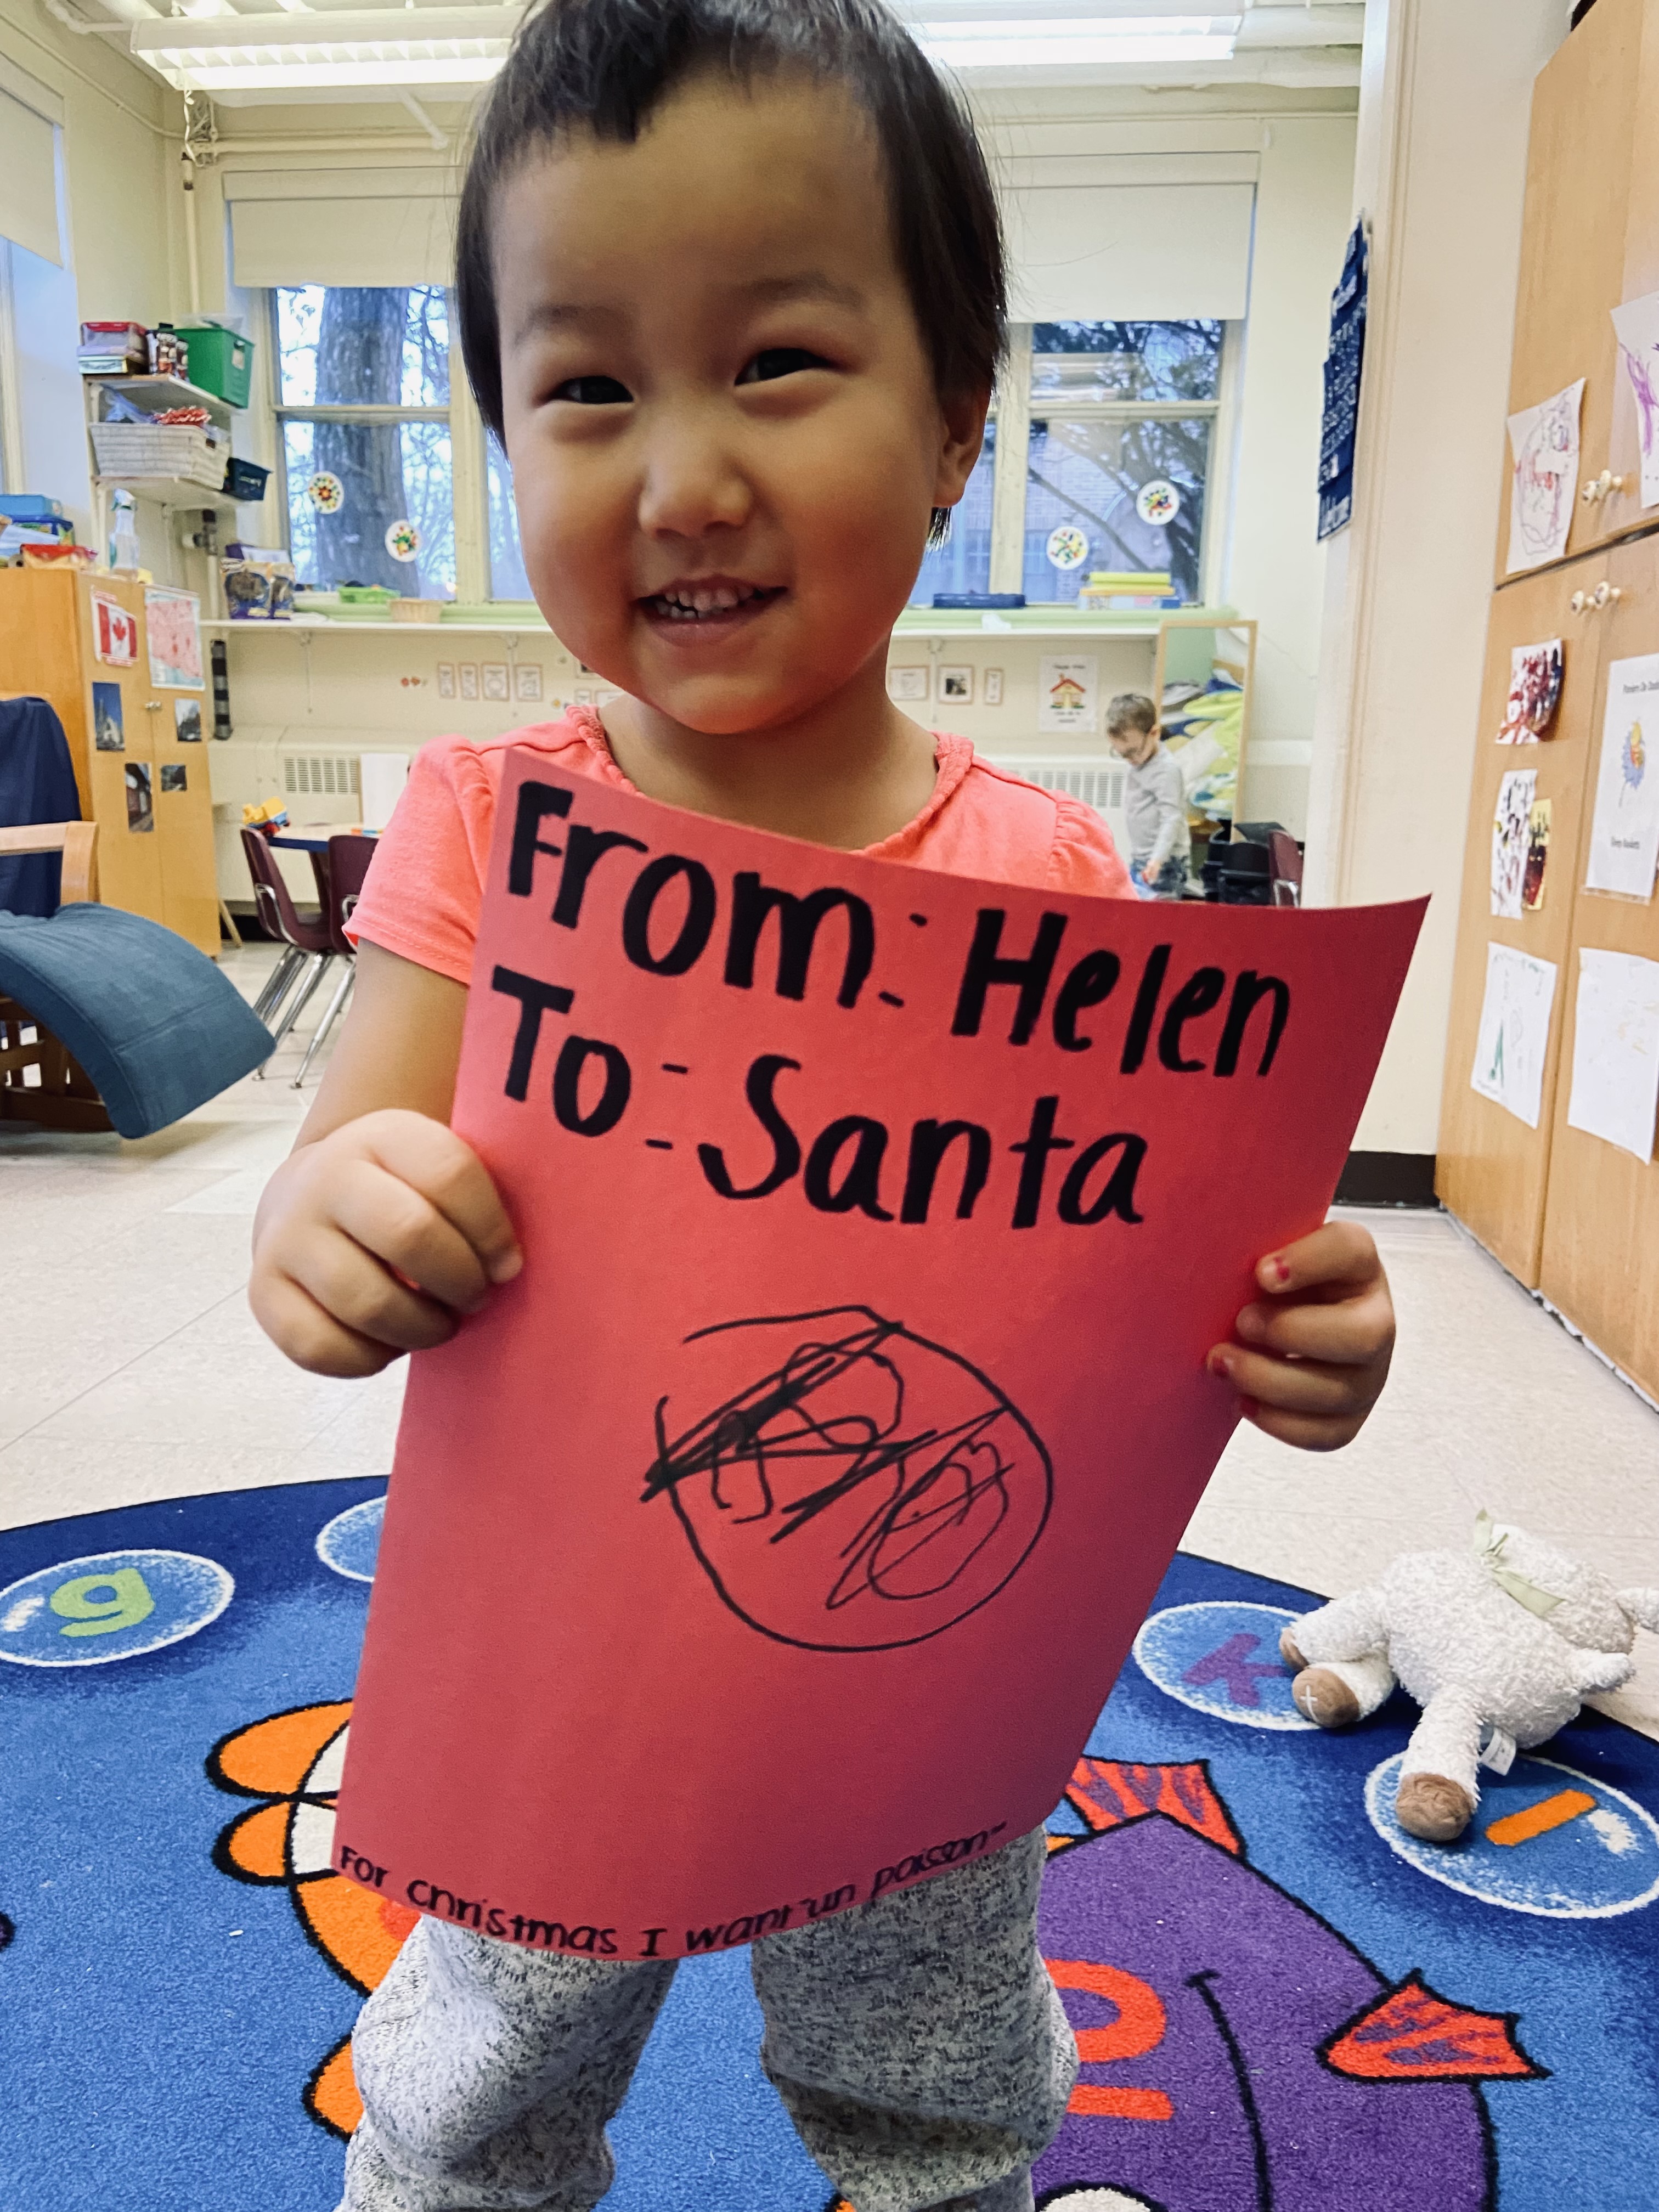 From: Helen
To: Santa
For christmas I want "un poisson"
g
k
l